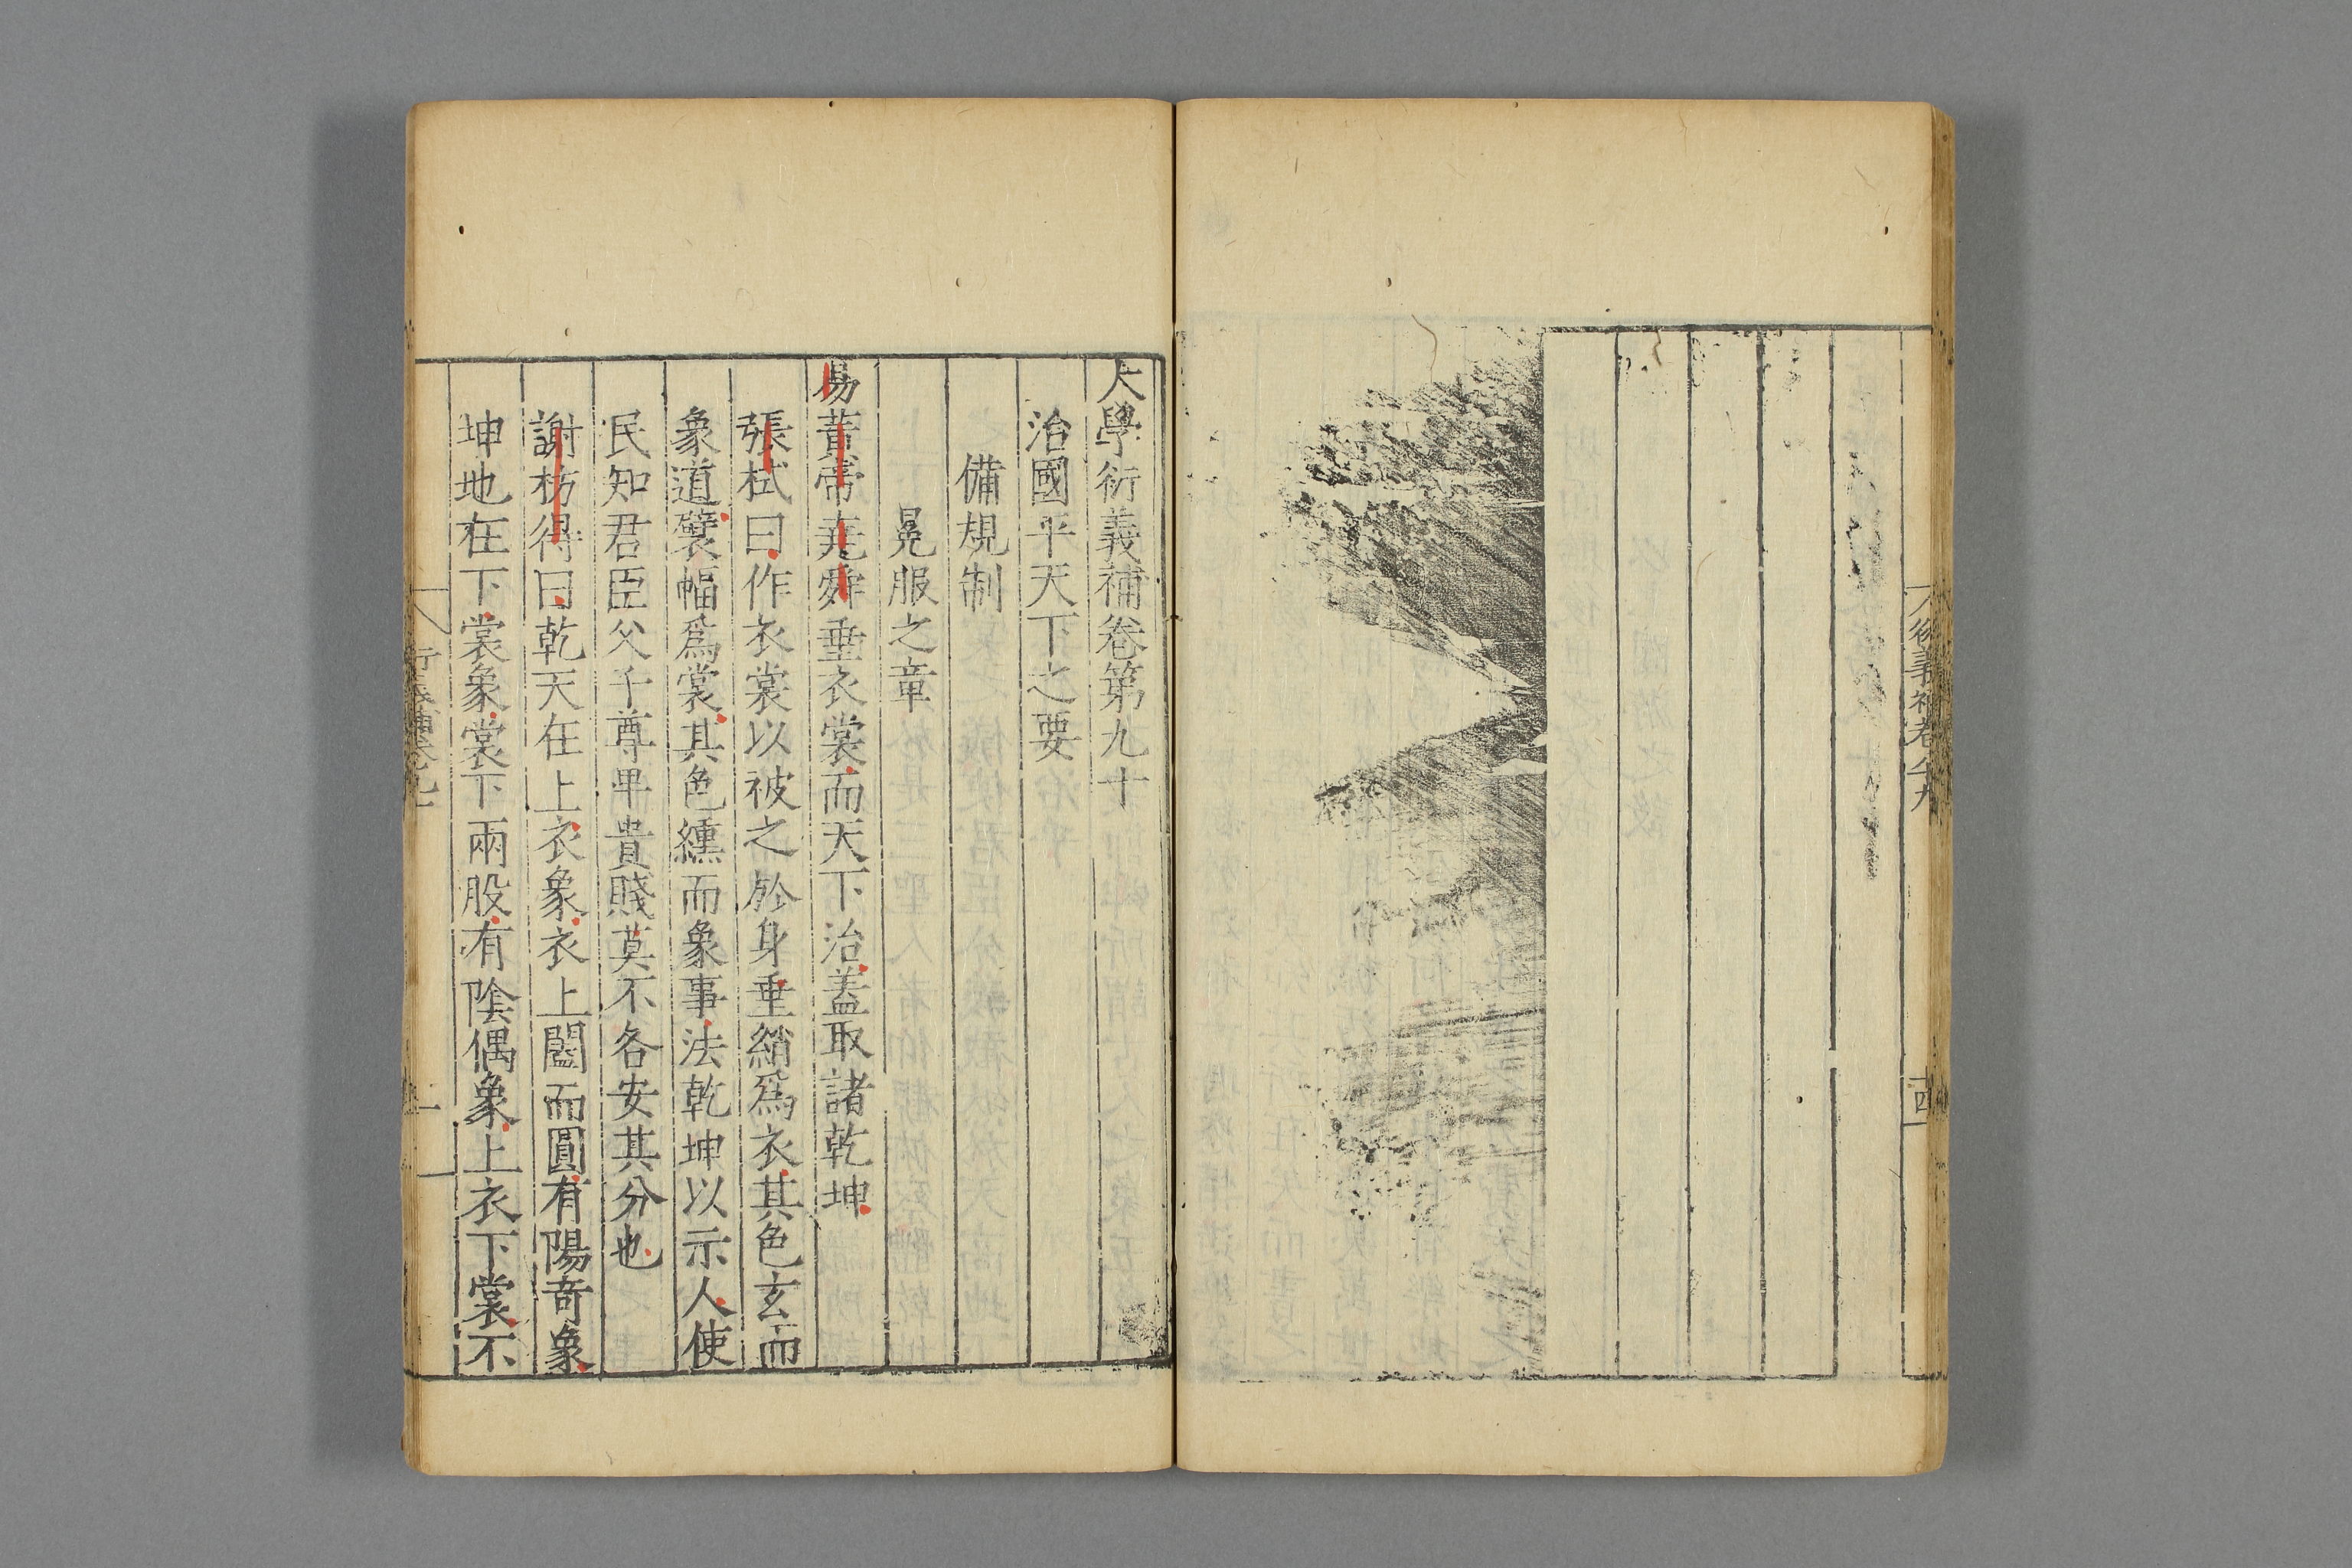 衍義補卷八十九
十四
大學衍義補卷第九十
治國平天下之要
備規制
冕服之章
易黃帝堯舜垂衣裳而天下治蓋取諸乾坤
張栻曰作衣裳以被之於身垂綃爲衣其色玄而
象道襞幅爲裳其色纁而象事法乾坤以示人使
民知君臣父子尊卑貴賤莫不各安其分也
謝枋得曰乾天在上衣象衣上闔而圓有陽奇象
坤地在下裳象裳下兩股有陰偶象上衣下裳不